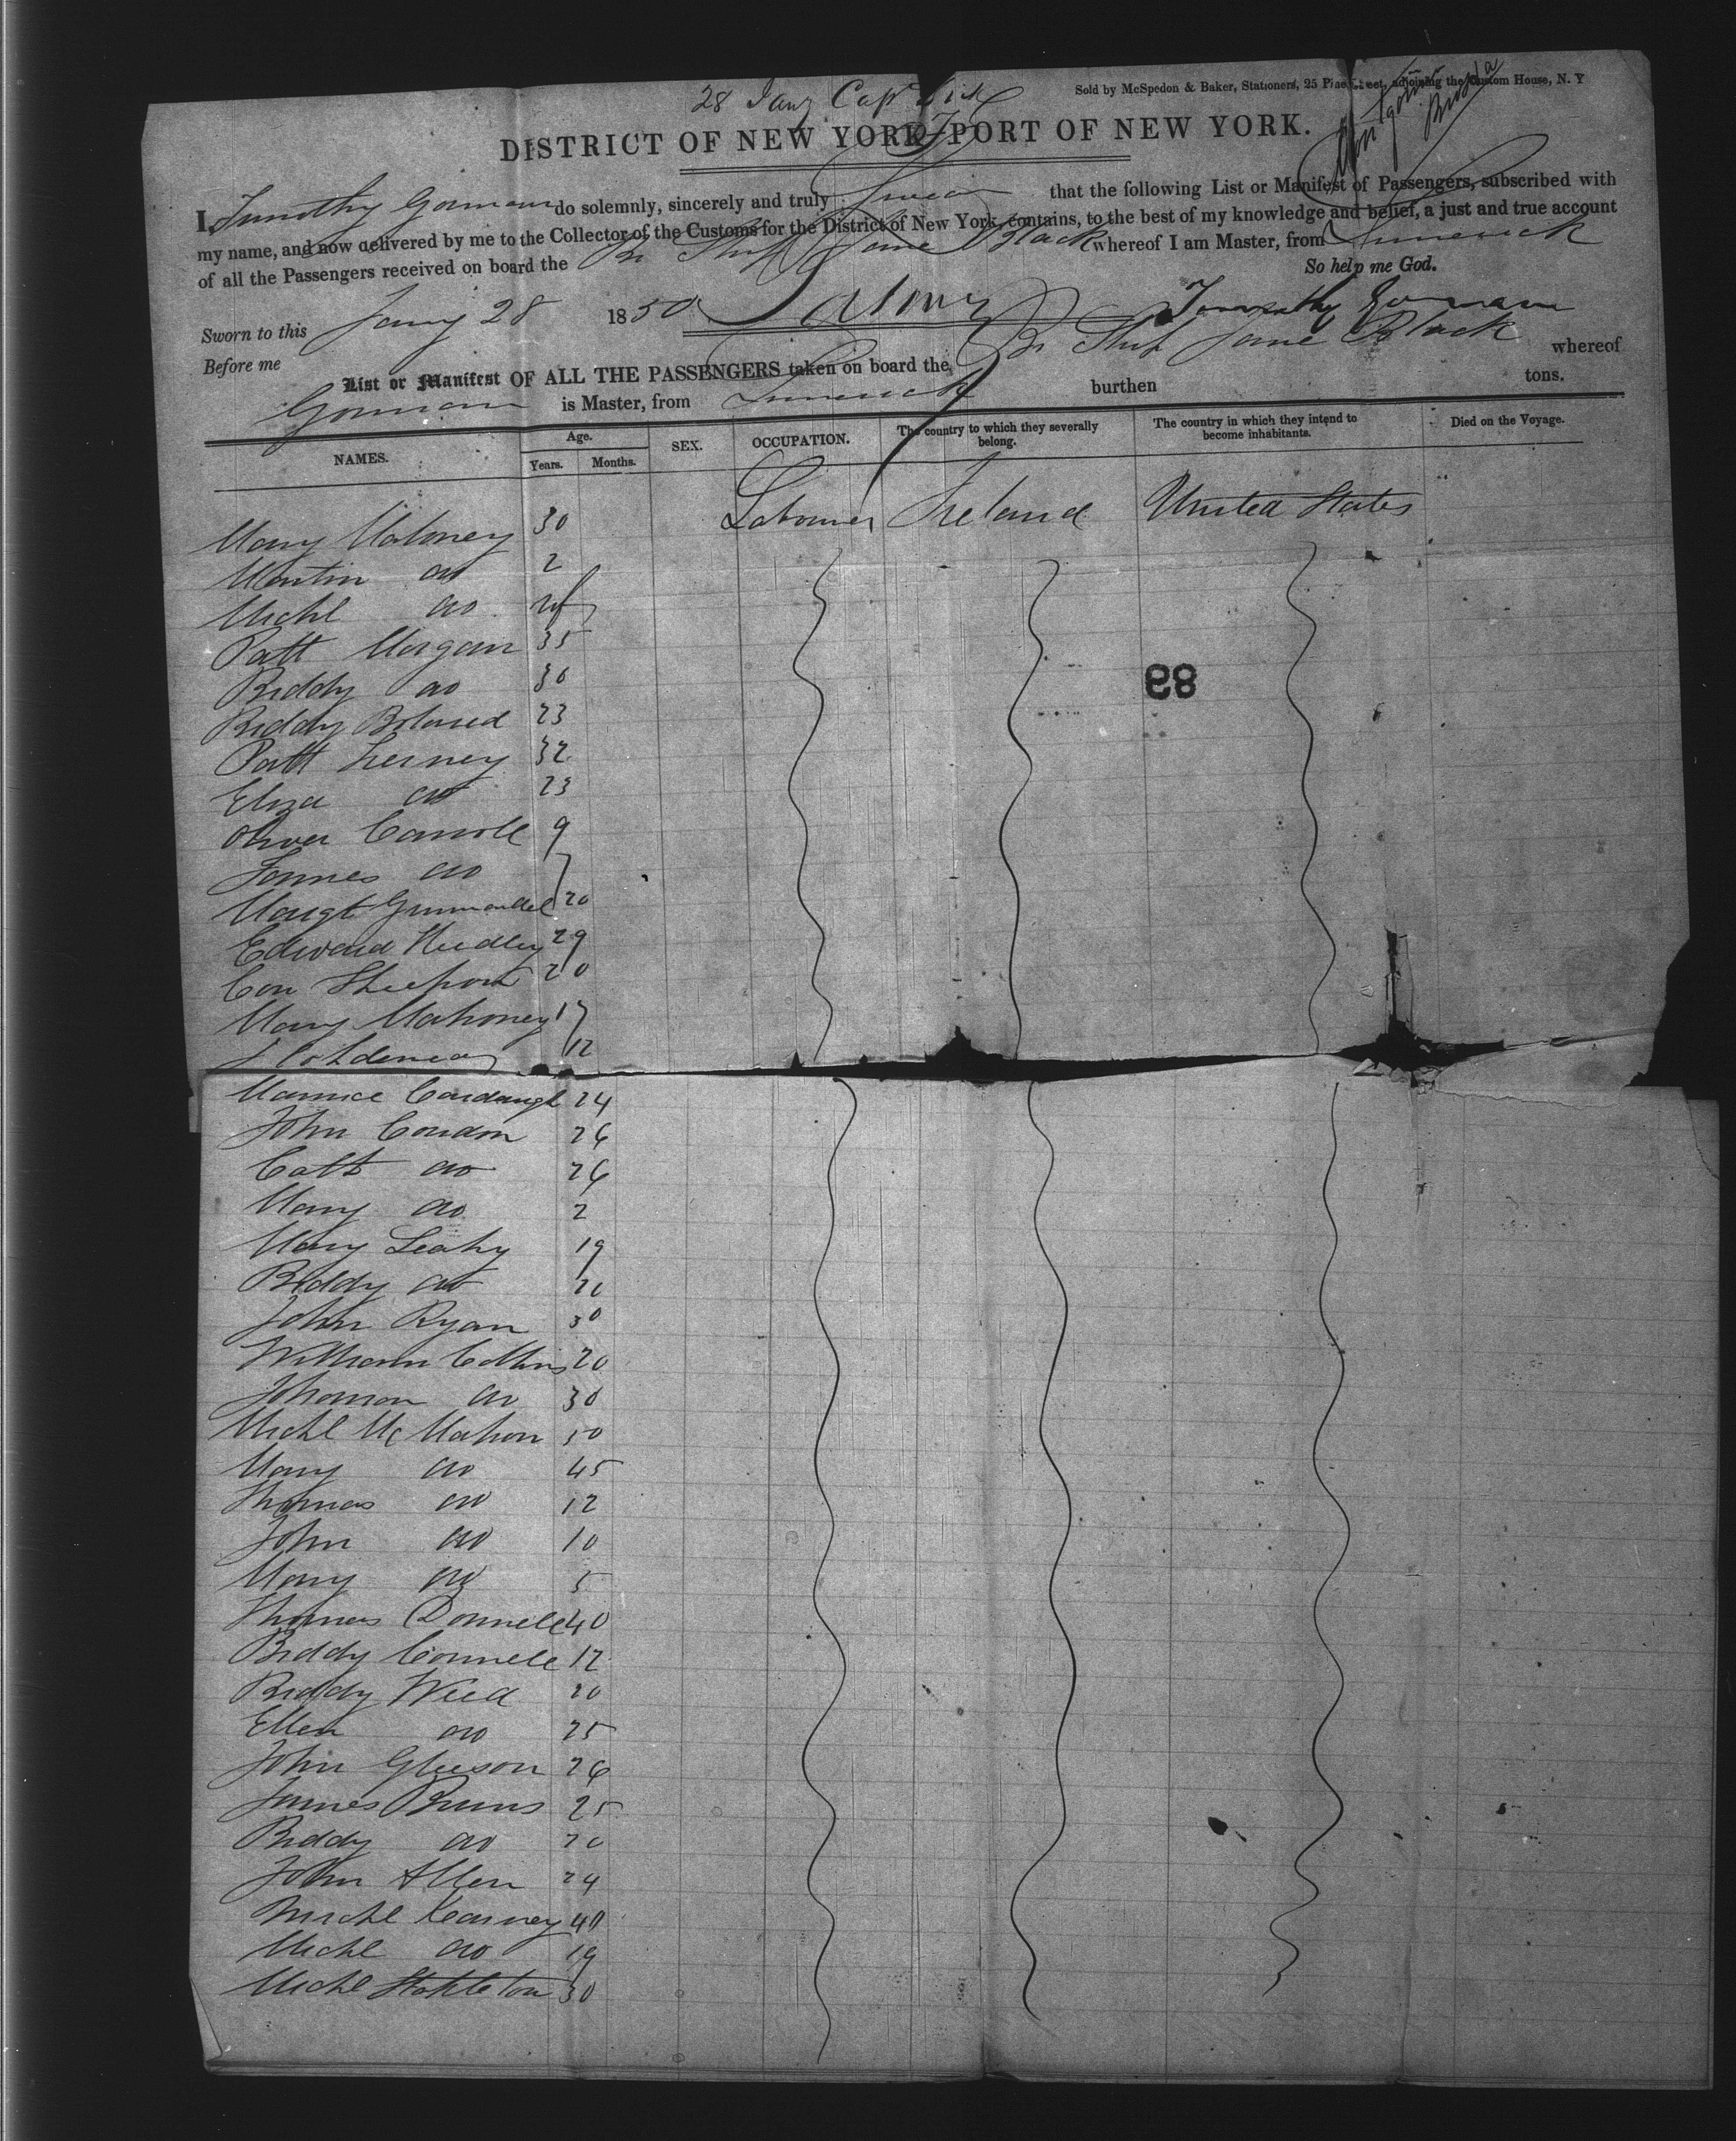 28 Jany Capt
Sold by McSpedon & Baker, Stationers, 25 Pine Street, adjoining the Custom House, N. Y
DISTRICT OF NEW YORK-PORT OF NEW YORK.
I, Timothy Gorman do solemnly, sincerely and truly Swear that the following List or Manifest of Passengers, subscribed with
my name, and now delivered by me to the Collector of the Customs for the District of New York, contains, to the best of my knowledge and belief, a just and true account
of all the Passengers received on board the Br Ship Jane Black whereof I am Master, from Limerick
So help me God.
Sworn to this Jany 28 1850 Timothy Gorman
Before me
List or Manifest OF ALL THE PASSENGERS taken on board the Br Ship Jane Black whereof
Gorman is Master, from Limerick burthen tons.
NAMES. Age. Years. Months. SEX. OCCUPATION. The country to which they severally belong. The country in which they intend to become inhabitants. Died on the Voyage.
Mary Maloney 30 Labourer Ireland United States
Martin do 2
Michl do
Patt Morgan 35
Biddy do 30
Biddy Boland 23
Patt 32
Eliza do 23
Oliver Carroll 9
James do 7
Margt 20
Edward 29
Con 20
Mary Mahoney 17
12
Maurice 24
John Condon 26
Catt do 26
Mary do 2
Mary Leahy 19
Biddy do
John Ryan 30
William Collins 20
Johanna do 30
Michl McMahon 50
Mary do 45
Thomas do 12
John do 10
Mary do 5
Thomas Donnell 40
Biddy Connell 12
Biddy 20
Ellen do 25
John Gleeson 26
James Burns 25
Biddy do 20
John Allen 24
Michl Kearney 40
Michl do 19
Michl Stapleton 30
89